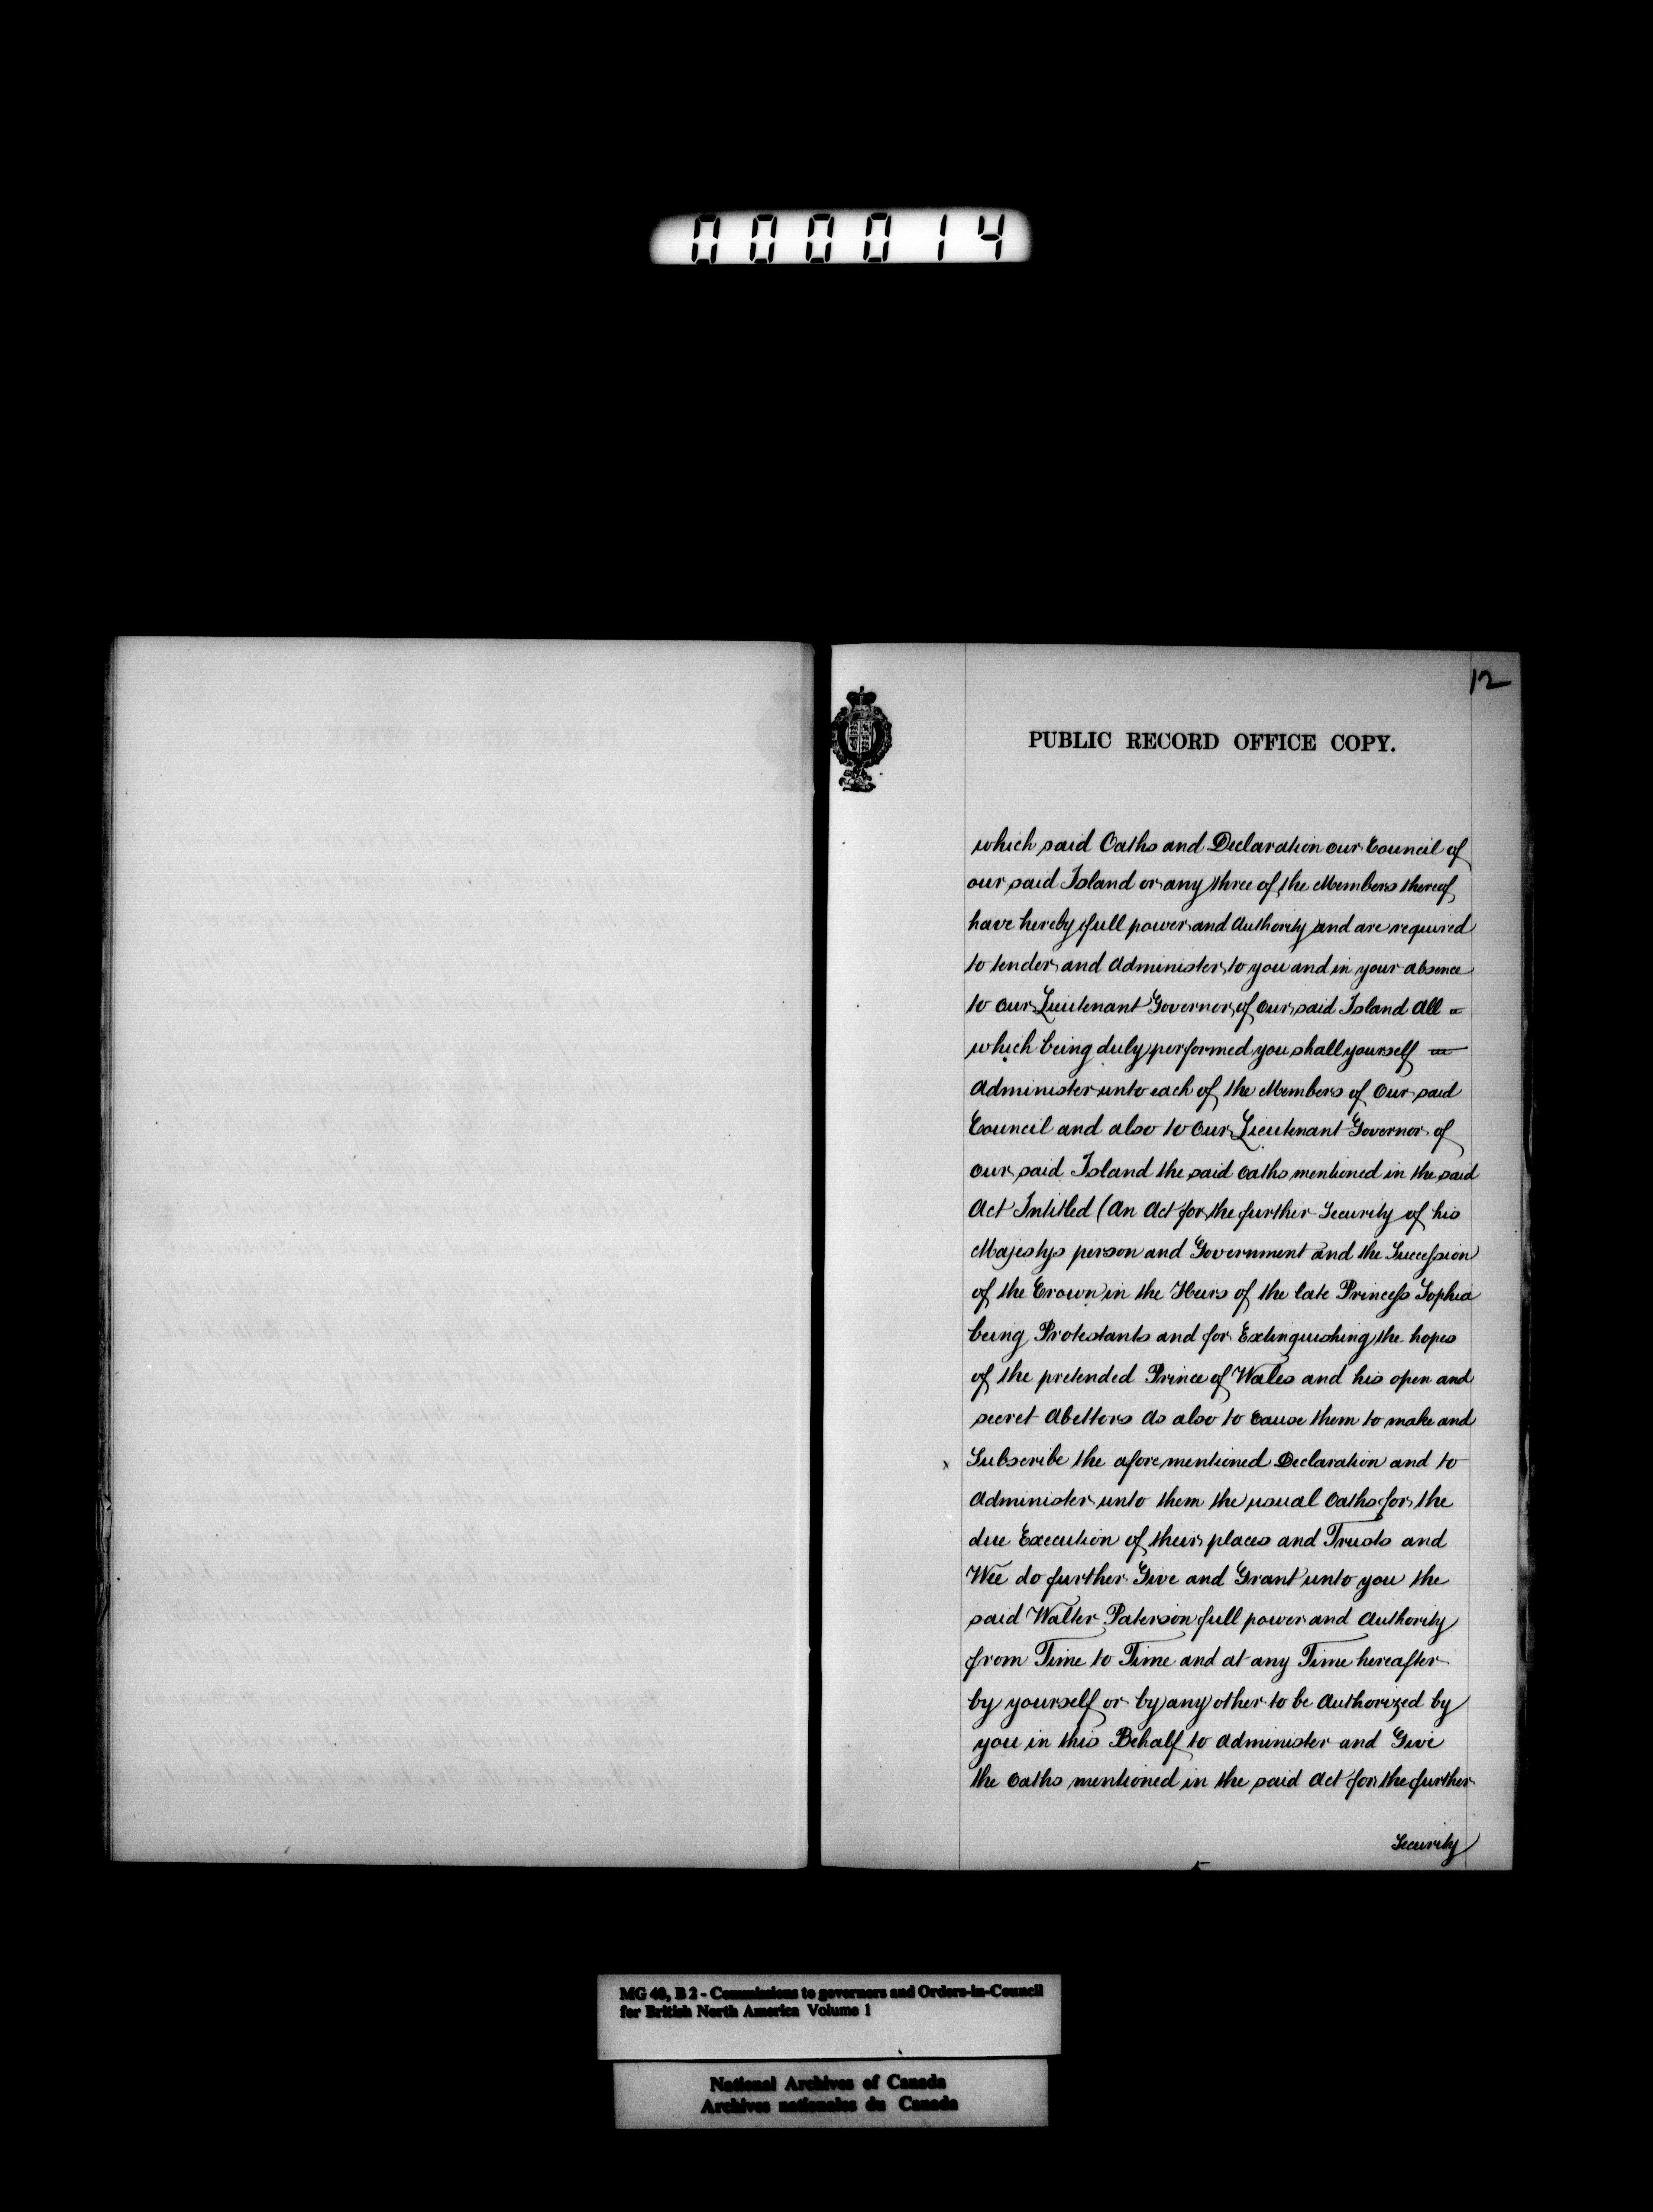 000014
12
PUBLIC RECORD OFFICE COPY.
which said Oaths and Declaration our Council of
our said Island or any three of the Members thereof
have hereby full power and Authority and are required
to tender and Administer to you and in your absence
to our Lieutenant Governor of our said Island All
which being duly performed you shall yourself
Administer unto each of the Members of Our said
Council and also to Our Lieutenant Governor of
our said Island the said Oaths mentioned in the said
Act Intitled (An Act for the further Security of his
Majestys person and Government and the Succession
of the Crown in the Heirs of the late Princess Sophia
being Protestants and for Extinguishing the hopes
of the pretended Prince of Wales and his open and
secret Abettors As also to Cause them to make and
Subscribe the aforementioned Declaration and to
Administer unto them the usual Oaths for the
due Execution of their places and Trusts and
Wee do further Give and Grant unto you the
said Walter Paterson full power and Authority
from Time to Time and at any Time hereafter
by yourself or by any other to be Authorized by
you in this Behalf to Administer and Give
the Oaths mentioned in the said Act for the further
Security
MG 40, B 2 - Commissions to governors and Orders-in-Council
for British North America Volume 1
National Archives of Canada
Archives nationales du Canada